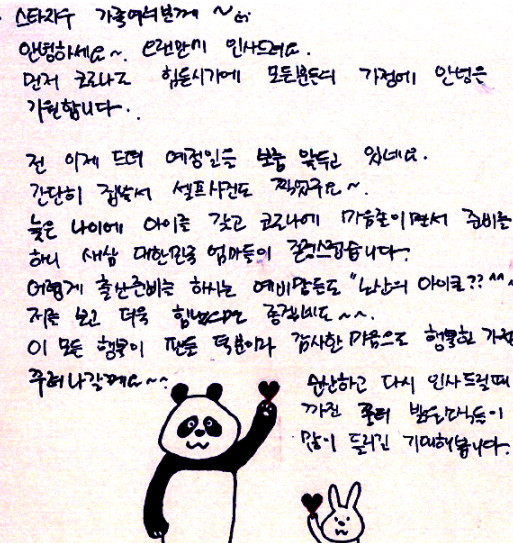 스타자수 가족여러분께 ~
안녕하세요~. 오랜만에 인사드려요.
먼저 코로나로 힘든시기에 모든분들의 가정에 안녕을
기원합니다.
전 이제 드뎌 예정일을 보름 앞두고 있네요.
간단히 집에서 셀프사진도 찍었구요~.
늦은 나이에 아이를 갖고 코로나에 마음졸이면서 준비를
하니 새삼 대한민국 엄마들이 존경스럽습니다.
어렵게 출산준비를 하시는 예비맘들도 "노산의 아이콘?? ^^~
저를 보고 더욱 힘냈으면 좋겠네요~~.
이 모든 행복이 팬들 덕분이라 감사한 마음으로 행복한 가정
꾸려나갈께요~~
순산하고 다시 인사드릴때
까진 좀더 밝은소식들이
많이 들리길 기대해봅니다.